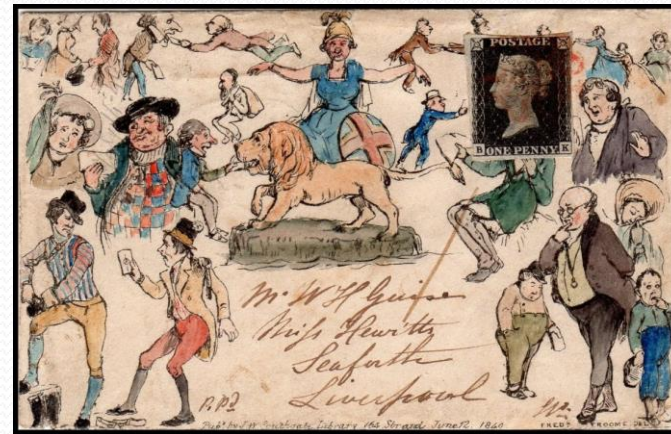 POSTAGE
B ONE PENNY K
Mr W H Guise
Miss Hewitts
Seaforth
Liverpool
P. Pd
Pubd by J. W. Southgate Library 164 Strand June 12. 1840
FREDK